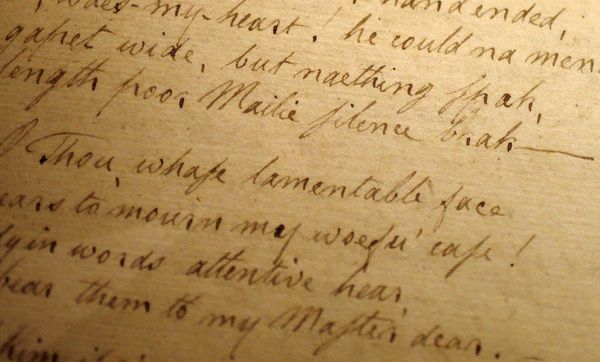 hand ended,
, waes-my-heart! he could na men
gapet wide, but naething ſpak,
length poor Mailie ſilence brak—
O Thou, whaſe lamentable face
ears to mourn my woefu' caſe!
dyin words attentive hear,
bear them to my Maſter dear.